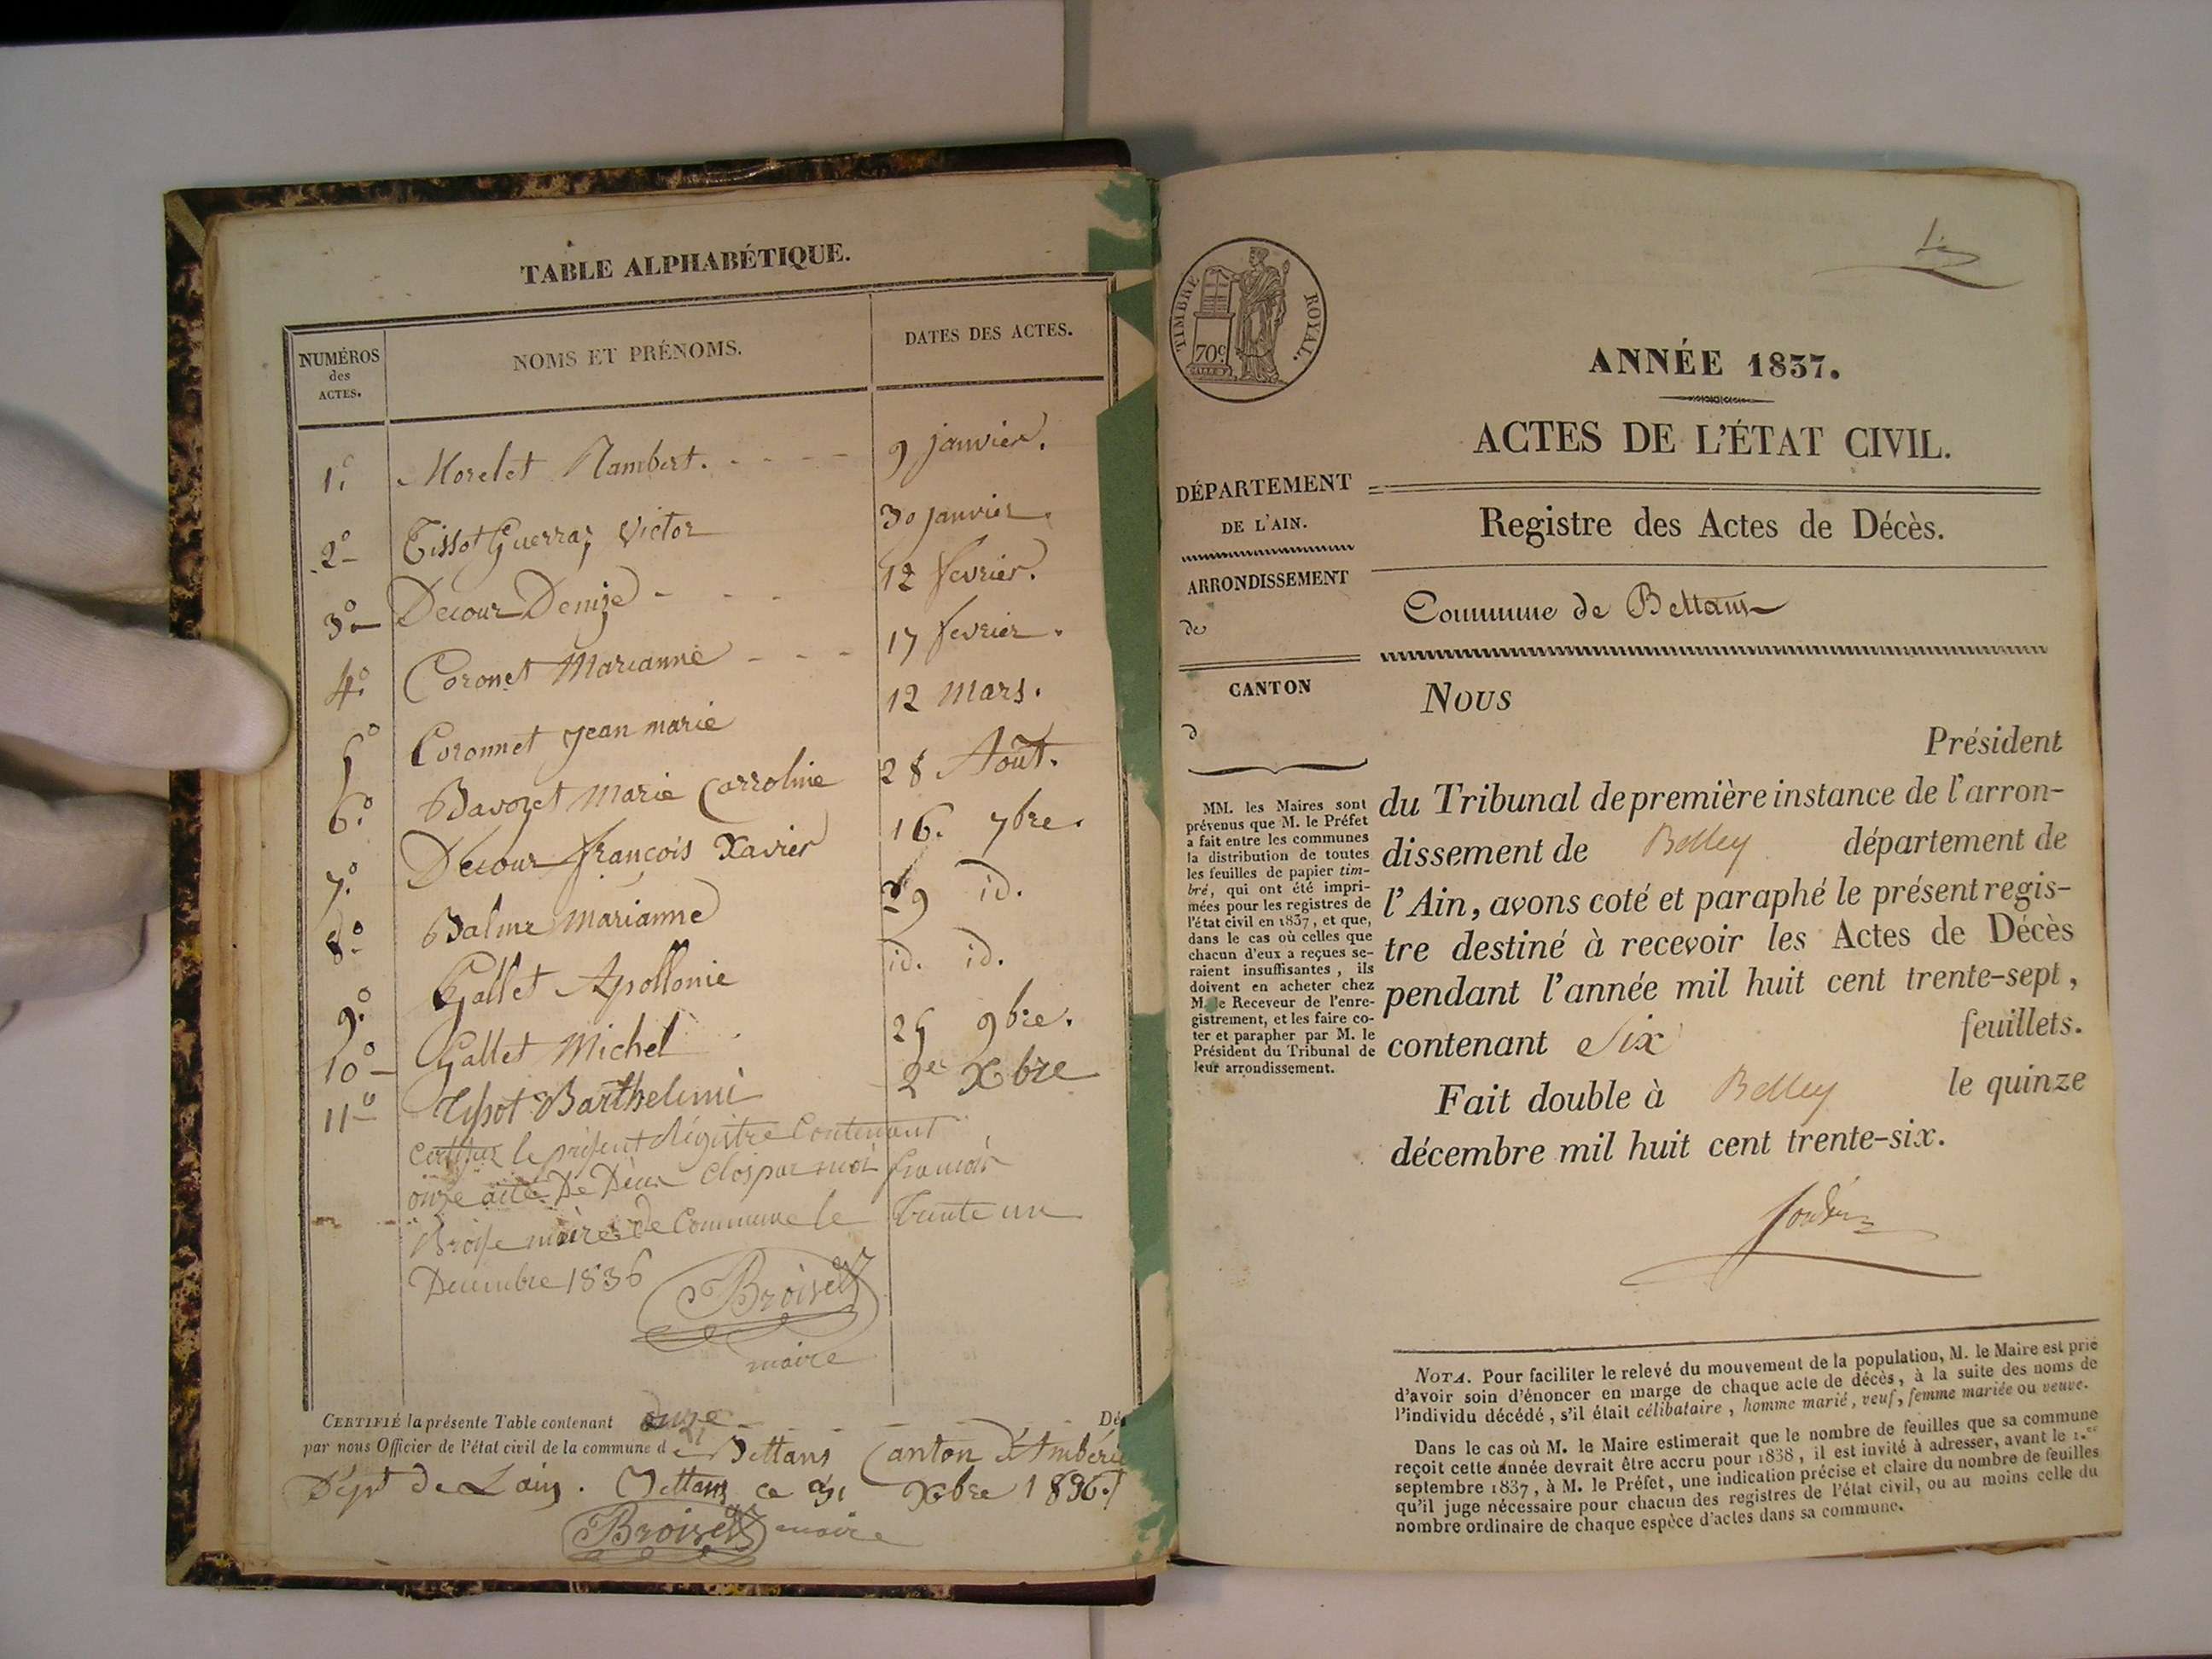 TABLE ALPHABÉTIQUE.
NUMÉROS
des
ACTES.
NOMS ET PRÉNOMS.
DATES DES ACTES.
1.° Morelet Rambert. - - - - 9 janvier.
2° Tissot Guerraz Victor 30 janvier.
3° Decour Denize - - - 12 fevrier.
4.° Coronet Marianne - - - 17 fevrier.
5° Coronnet Jean marie 12 mars.
6.° Bavozet Marie Carroline 28 Août.
7.° Decour françois Xavier 16. 7bre.
8° Balme Marianne 29 id.
9.° Gallet Apollonie id. id.
10° Gallet Michel 25 9bre.
11° Tissot Barthelemi 2er Xbre
certifier le présent Régistre Contenant
onze acte De Décès Clos par moi francois
Broise maire de Commune le trente un
Decembre 1836
Broise
maire
CERTIFIÉ la présente Table contenant onze Dé
par nous Officier de l'état civil de la commune de Bettans Canton d'Ambérie
Dept de Lain. Bettans ce 31 Xbre 1836./
Broise maire
TIMBRE ROYAL.
70c
1er
ANNÉE 1837.
ACTES DE L'ÉTAT CIVIL.
DÉPARTEMENT
DE L'AIN.
ARRONDISSEMENT
de
CANTON
d
MM. les Maires sont
prévenus que M. le Préfet
a fait entre les communes
la distribution de toutes
les feuilles de papier tim-
bré, qui ont été impri-
mées pour les registres de
l'état civil en 1837, et que,
dans le cas où celles que
chacun d'eux a reçues se-
raient insuffisantes, ils
doivent en acheter chez
M. le Receveur de l'enre-
gistrement, et les faire co-
ter et parapher par M. le
Président du Tribunal de
leur arrondissement.
Registre des Actes de Décès.
Commune de Bettans
Nous
Président
du Tribunal de première instance de l'arron-
dissement de Belley département de
l'Ain, avons coté et paraphé le présent regis-
tre destiné à recevoir les Actes de Décès
pendant l'année mil huit cent trente-sept,
contenant Six feuillets.
Fait double à Belley le quinze
décembre mil huit cent trente-six.
NOTA. Pour faciliter le relevé du mouvement de la population, M. le Maire est prié
d'avoir soin d'énoncer en marge de chaque acte de décès, à la suite des noms de
l'individu décédé, s'il était célibataire, homme marié, veuf, femme mariée ou veuve.
Dans le cas où M. le Maire estimerait que le nombre de feuilles que sa commune
reçoit cette année devrait être accru pour 1838, il est invité à adresser, avant le 1.er
septembre 1837, à M. le Préfet, une indication précise et claire du nombre de feuilles
qu'il juge nécessaire pour chacun des registres de l'état civil, ou au moins celle du
nombre ordinaire de chaque espèce d'actes dans sa commune.